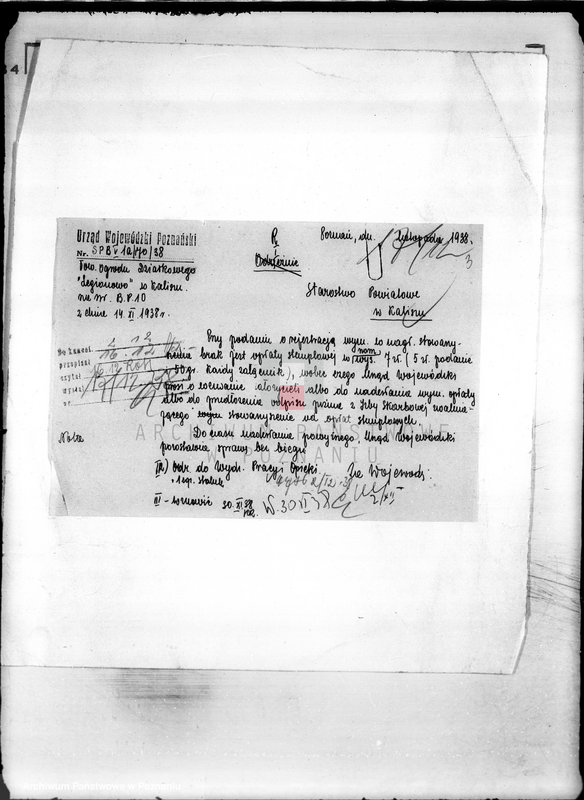 4
Urząd Wojewódzki Poznański
Nr. SPB v 1a/40/38
Tow. Ogrodu Działkowego
"Legionowo" w Kaliszu
na nr. B.P. 10
z dnia 14. XI 1938 r.
Poznań, dn. listopada 1938.
3
Starostwo Powiatowe
w Kaliszu
przepisał
czytał
wysłał
Przy podaniu o rejestrację wym. w nagł. stowarzy-
szenia brak jest opłaty stemplowej w wys. 7 zł. (5 zł. podanie
50 gr. każdy załącznik), wobec czego Urząd Wojewódzki
o wezwanie założycieli albo do nadesłania wym. opłaty
albo do przedłożenia odpisu pisma z Izby Skarbowej zwalnia-
jącego wym. stowarzyszenie od opłat stemplowych.
Do czasu nadesłania powyższego Urząd Wojewódzki
pozostawia sprawę bez biegu
Nota
II) Odr. do Wydz. Pracy i Opieki
1 egz. statutu
Za Wojewodę:
III - wznowić 30. XI 38
ARCHIWUM PAŃSTWOWE
W POZNANIU
Archiwum Państwowe w Poznaniu